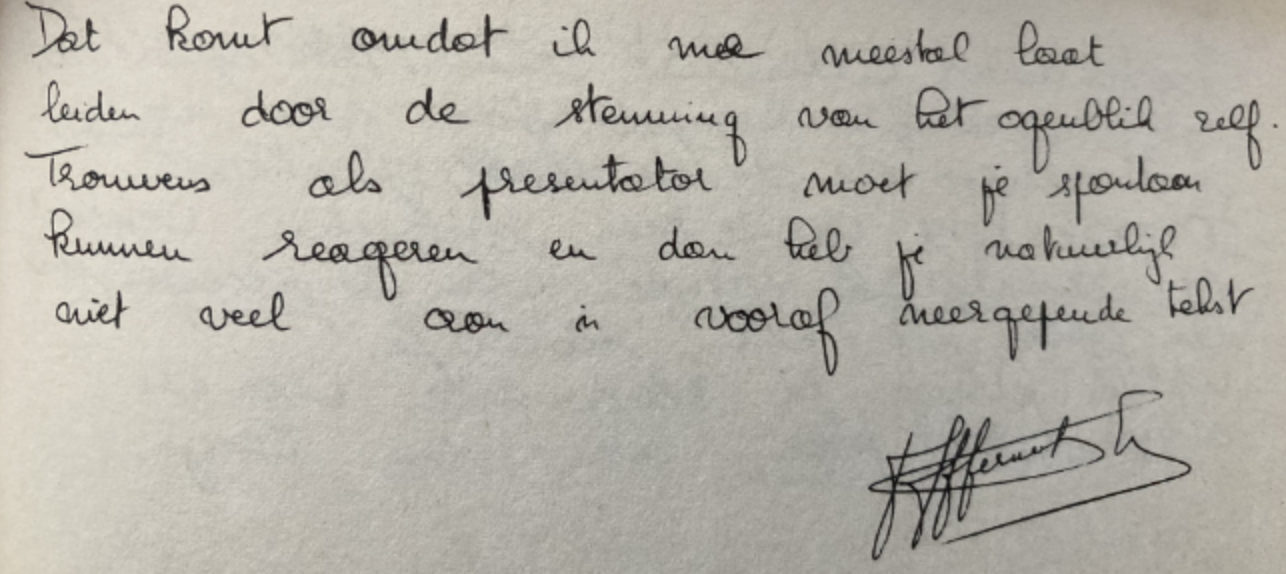 Dat komt omdat ik me meestal laat
leiden door de stemming van het ogenblik zelf.
Trouwens als presentator moet je spontaan
kunnen reageren en dan heb je natuurlijk
niet veel aan in vooraf neergepende tekst